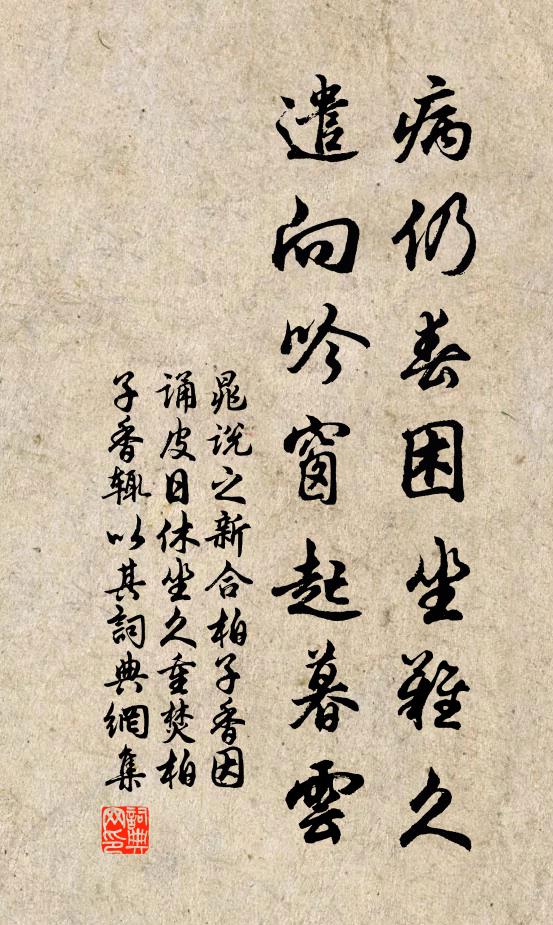 病仍春困坐難久
遣向吟窗起暮雲
晁說之新合柏子香因
誦皮日休坐久重焚柏
子香輒以其詞典網集
詞典网印